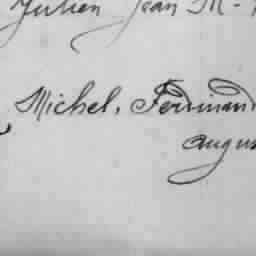 Julien Jean M-
Michel, Ferdinand
Augus